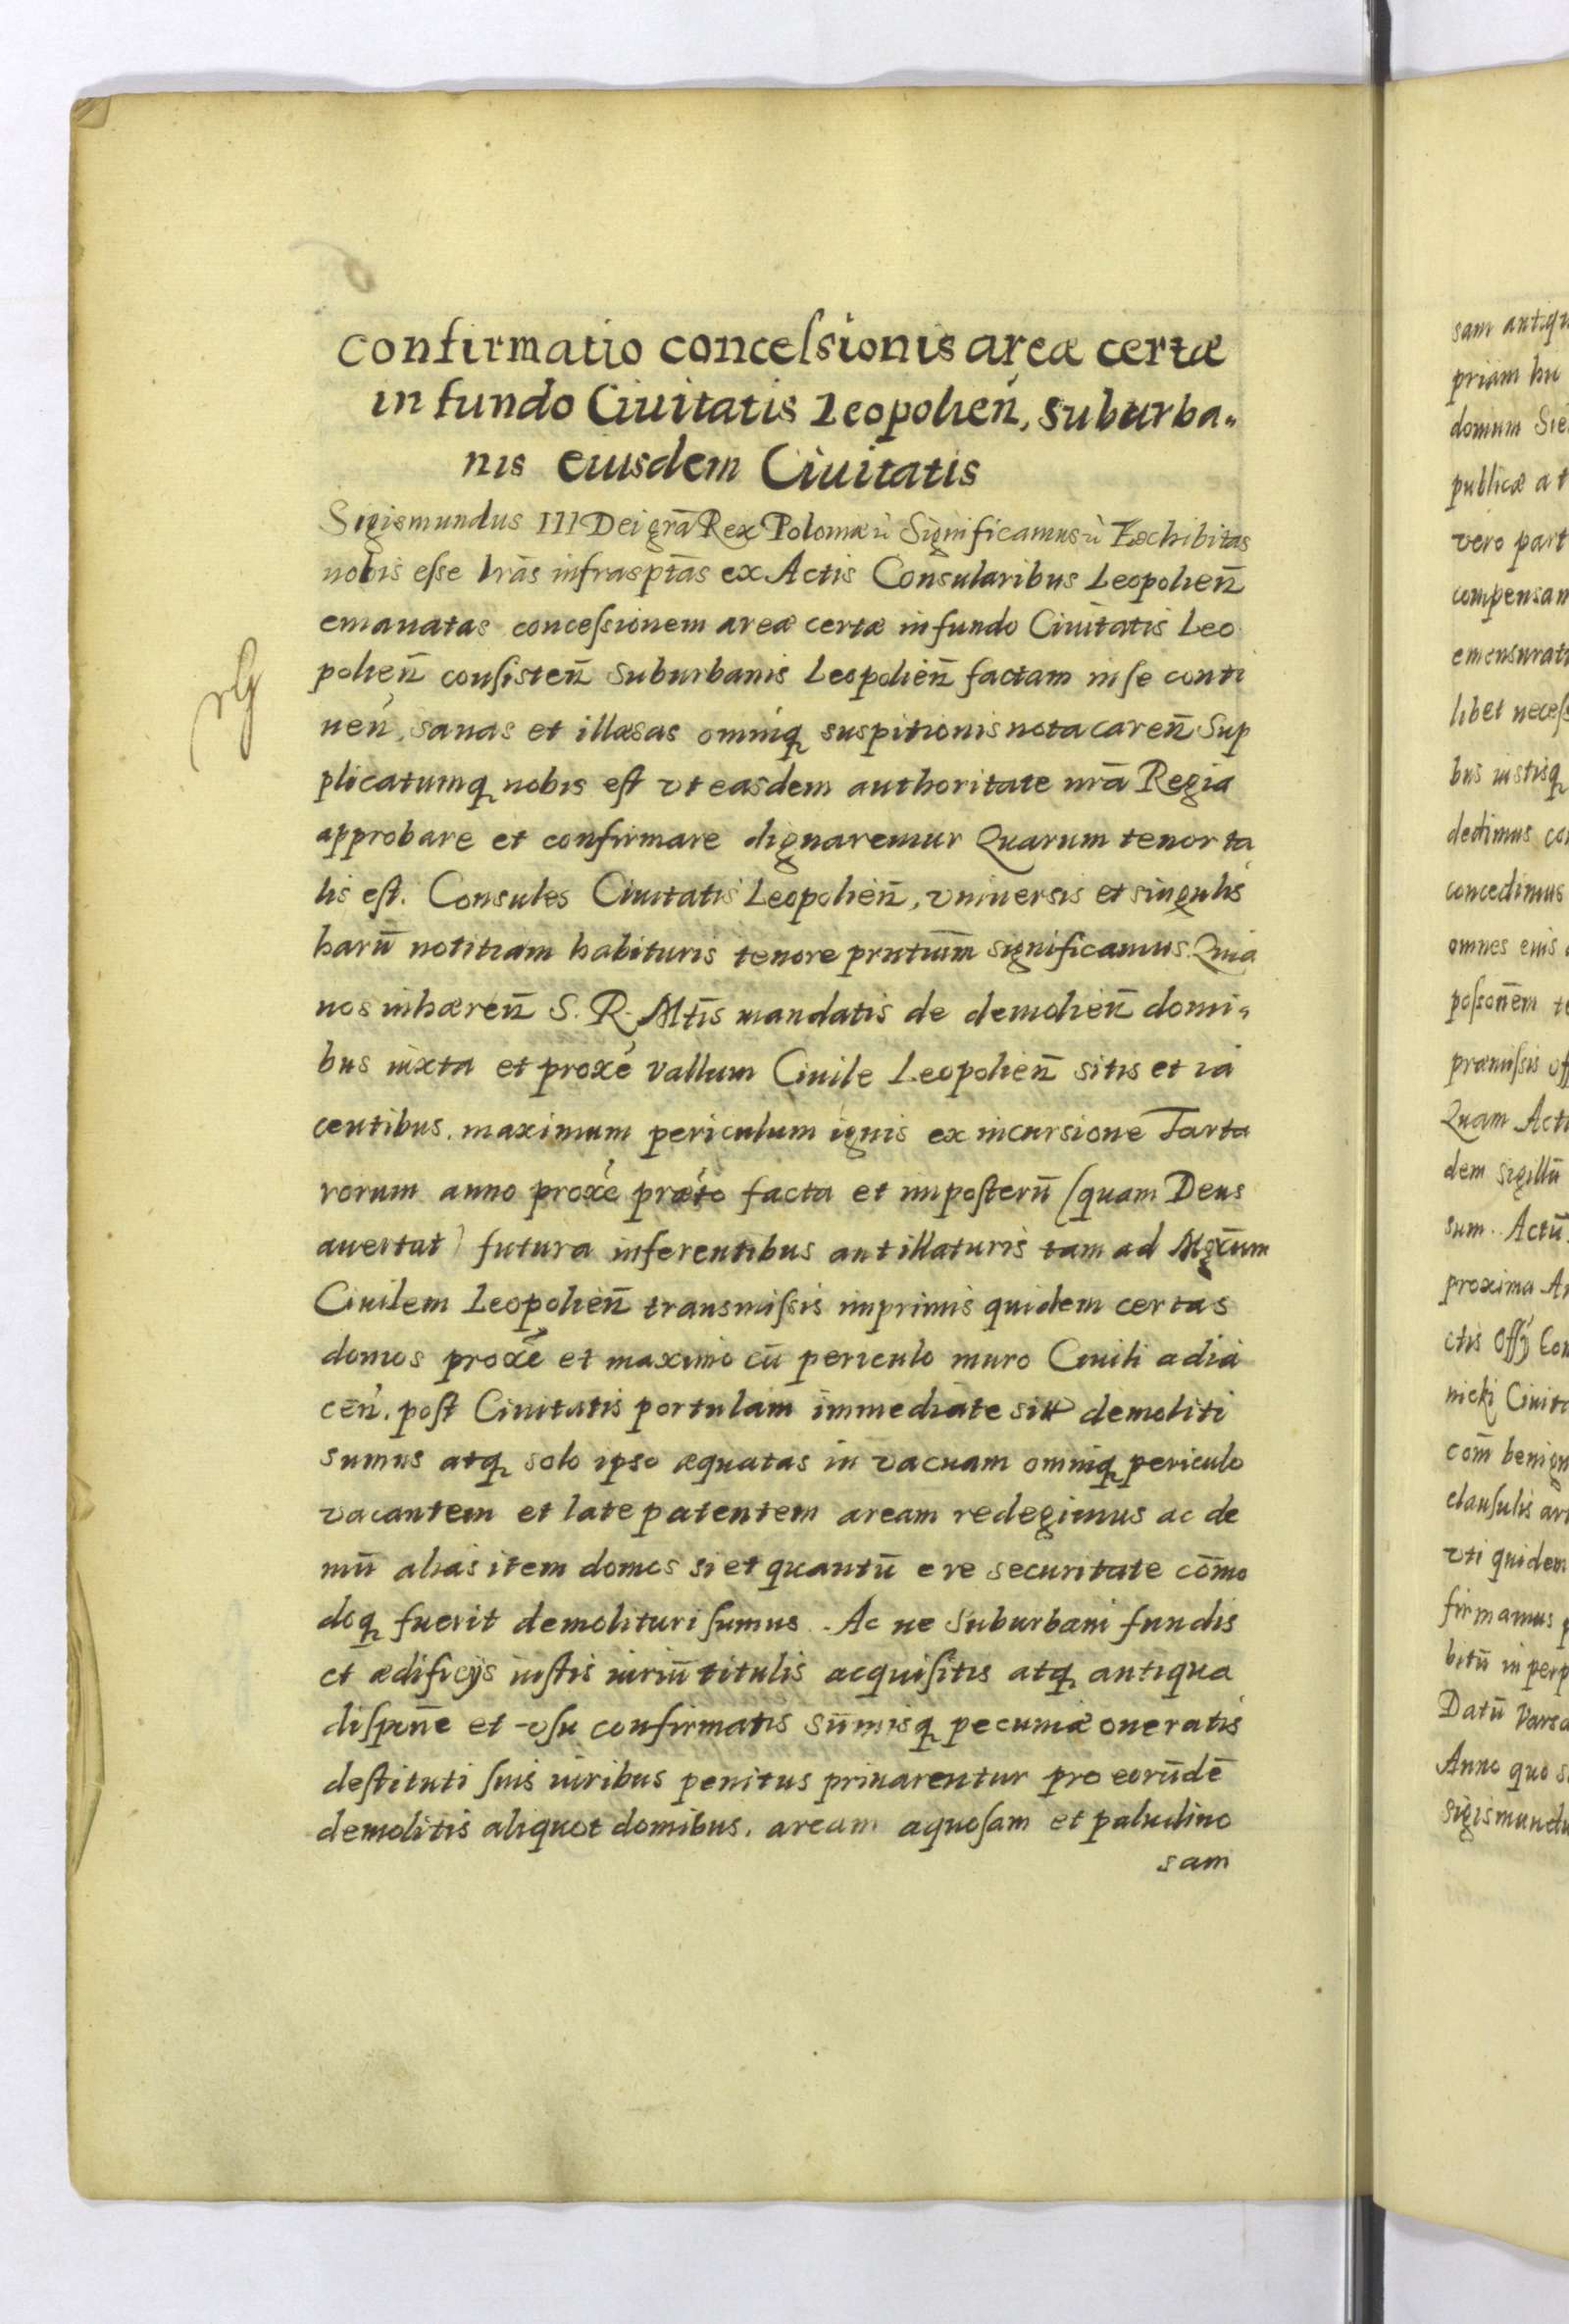 Confirmatio concessionis areæ certæ
in fundo Ciuitatis Leopolień, suburba„
nis eiusdem Ciuitatis
Sigismundus III Dei grã Rex Poloniæ ù Significamus ù Exhibitas
nobis esse lrãs infrasptãs ex Actis Consularibus Leopolien̄
emanatas concessionem areæ certæ in fundo Ciuitatis Leo
polien̄ consisten̄ suburbanis Leopolien̄ factam in se conti
neń, sanas et illæsas omniq suspitionis nota caren̄ Sup
plicatumq nobis est vt easdem authoritate nrã Regia
approbare et confirmare dignaremur Quarum tenor ta
lis est. Consules Ciuitatis Leopolien̄, vniuersis et singulis
harū notitiam habituris tenore pntium̄ significamus. Quia
nos inhæren̄ S. R. Mtis̄ mandatis de demolien̄ domi„
bus iuxta et proxé vallum Ciuile Leopolien̄ sitis et ia
centibus. maximum periculum ignis ex incursione Tarta
rorum anno proxé præto facta et imposterū (quam Deus
auertat) futura inferentibus aut illaturis tam ad Mgr̄um
Ciuilem Leopolien̄ transmissis imprimis quidem certas
domos proxé et maximo cū periculo muro Ciuili adia
ceń. post Ciuitatis portulam immediate sitt demoliti
sumus atq solo ipso æquatas in vacuam omniq periculo
vacantem et late patentem aream redegimus ac de
mū alias item domos si et quantū e re securitate cōmo
doq fuerit demolituri sumus. Ac ne Suburbani fundis
et ædificijs iustis iuriū titulis acquisitis atq antiqua
dispon̄e et vsu confirmatis sūmisq pecuniæ oneratis
destituti suis iuribus penitus priuarentur pro eorūdē
demolitis aliquot domibus. aream aquosam et paludino
sam